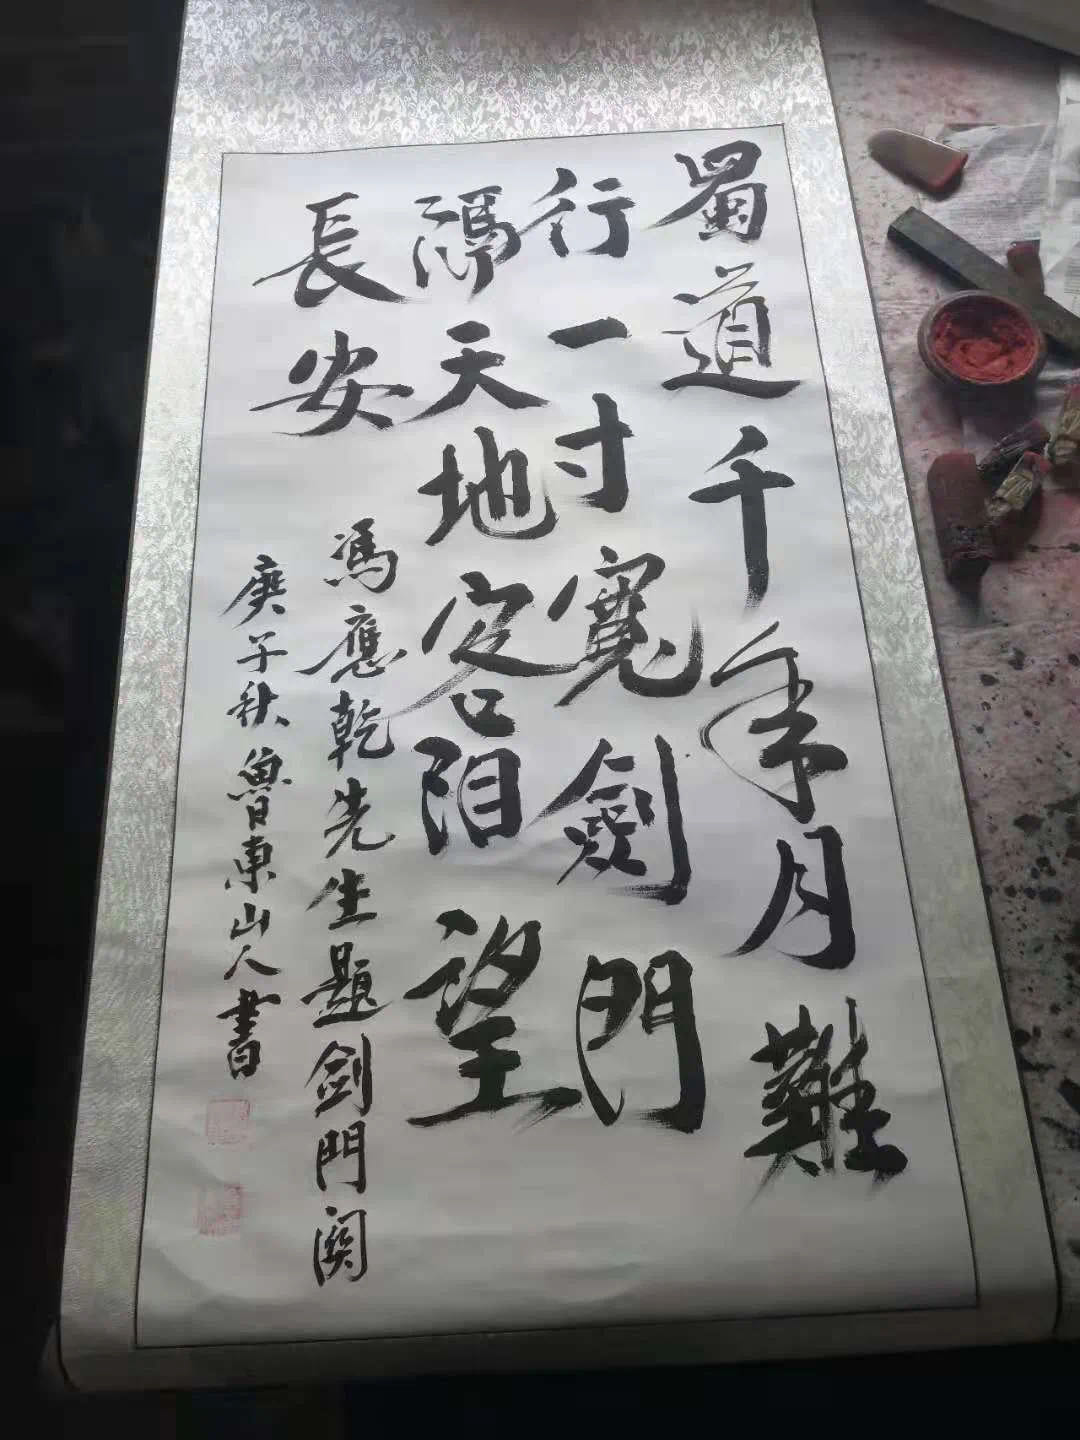 蜀道千年月難
行一寸寬劍門
隔天地客阻望
長安
馮應乾先生題剑門関
庚子秋魯東山人書